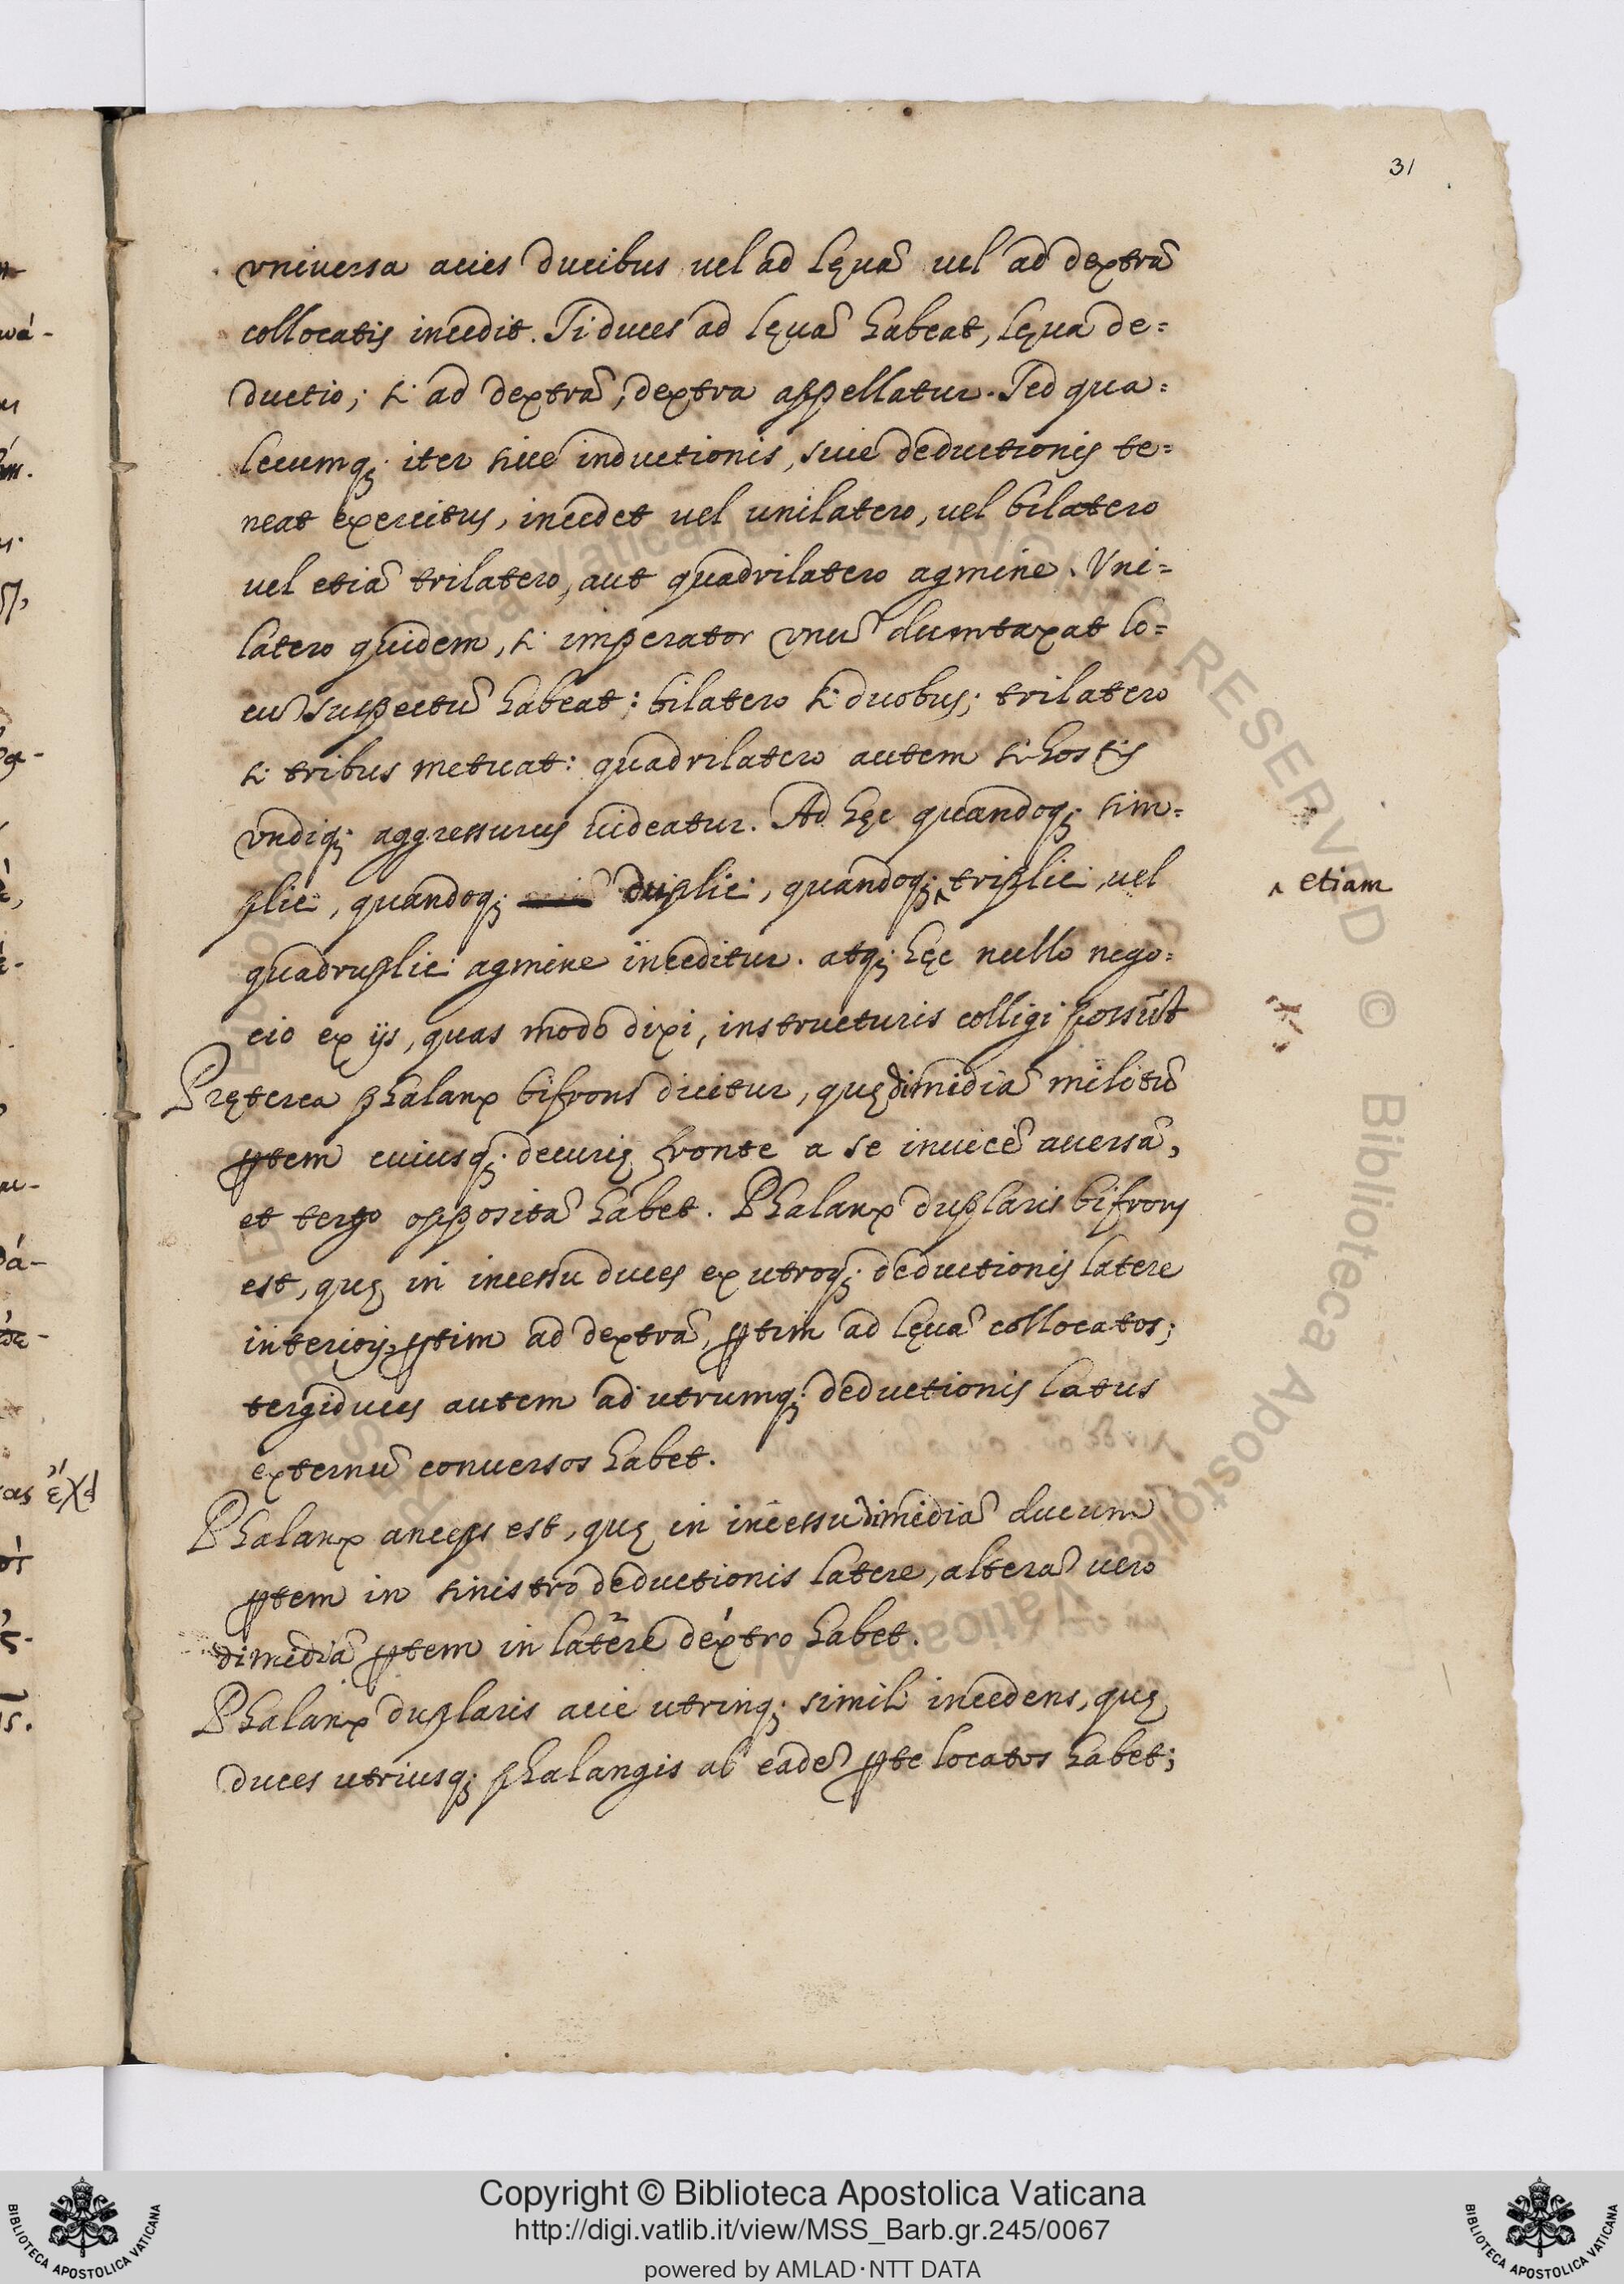 31
vniuersa acies ducibus uel ad lęuã uel ad dextrã
collocatis incedit. Si duces ad lęuã habeat, lęua de=
ductio; si ad dextrã, dextra appellatur. Sed qua=
lecumq; iter siue inductionis, siue deductionis te=
neat exercitus, incedet uel unilatero, uel bilatero
uel etiã trilatero, aut quadrilatero agmine. Vni=
latero quidem, si imperator vnũ dumtaxat lo=
cũ suspectũ habeat: bilatero si duobus; trilatero
si tribus metuat: quadrilatero autem si hostis
vndiq; aggressurus uideatur. Ad hęc quandoq; sim=
plici, quandoq; duplici, quandoq; ‸ triplici, uel
‸ etiam
quadruplici agmine inceditur. atq; hęc nullo nego=
cio ex ijs, quas modo dixi, instructuris colligi possũt
Pręterea phalanx bifrons dicitur, quę dimidiã militũ
ꝑtem cuiusq; decurię fronte a se inuicẽ auersã,
et tergo oppositã habet. Phalanx duplaris bifrons
est, quę in incessu duces ex utroq; deductionis latere
interiori, ꝑtim ad dextrã, ꝑtim ad lęuã collocatos;
tergiduces autem ad utrumq; deductionis latus
externũ conuersos habet.
Phalanx anceps est, quę in incessu dimidiã ducum
ꝑtem in sinistro deductionis latere, alterã uero
dimidiã ꝑtem in latere dextro habet.
Phalanx duplaris acie utrinq; simili incedens, quę
duces utriusq; phalangis ab eadẽ ꝑte locatos habet;
RESERVED © Biblioteca Apostolica Vaticana
Copyright © Biblioteca Apostolica Vaticana
http://digi.vatlib.it/view/MSS_Barb.gr.245/0067
powered by AMLAD·NTT DATA
BIBLIOTECA APOSTOLICA VATICANA
BIBLIOTECA APOSTOLICA VATICANA